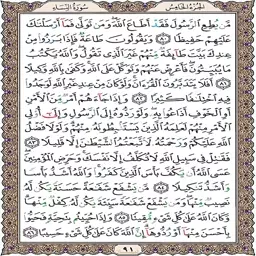 الجزء الخامس
سورة النساء
من يطع الرسول فقد أطاع الله ومن تولى فما أرسلناك
عليهم حفيظا ٨٠ ويقولون طاعة فإذا برزوا من
عندك بيت طائفة منهم غير الذي تقول والله يكتب
ما يبيتون فأعرض عنهم وتوكل على الله وكفى بالله وكيلا
٨١ أفلا يتدبرون القرآن ولو كان من عند غير الله لوجدوا
فيه اختلافا كثيرا ٨٢ وإذا جاءهم أمر من الأمن
أو الخوف أذاعوا به ولو ردوه إلى الرسول وإلى أولي
الأمر منهم لعلمه الذين يستنبطونه منهم ولولا فضل
الله عليكم ورحمته لاتبعتم الشيطان إلا قليلا ٨٣
فقاتل في سبيل الله لا تكلف إلا نفسك وحرض المؤمنين
عسى الله أن يكف بأس الذين كفروا والله أشد بأسا
وأشد تنكيلا ٨٤ من يشفع شفاعة حسنة يكن له
نصيب منها ومن يشفع شفاعة سيئة يكن له كفل منها
وكان الله على كل شيء مقيتا ٨٥ وإذا حييتم بتحية فحيوا
بأحسن منها أو ردوها إن الله كان على كل شيء حسيبا ٨٦
٩١